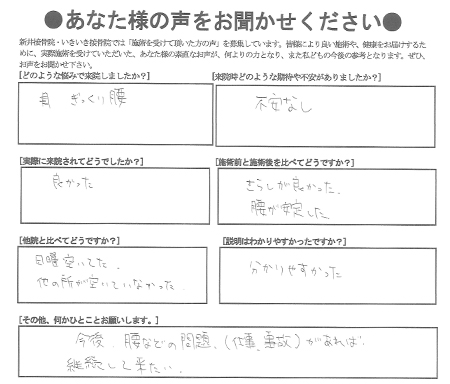 ●あなた様の声をお聞かせください●
新井接骨院・いきいき接骨院では「施術を受けて頂いた方の声」を募集しています。皆様により良い施術や、健康をお届けするた
めに、実際施術を受けていただいた、あなた様の素直なお声が、何よりの力となり、また私どもの今後の参考となります。ぜひ、
お声をお聞かせ下さい。
[どのような悩みで来院しましたか？]
肩 ぎっくり腰
[来院時どのような期待や不安がありましたか？]
不安なし
[実際に来院されてどうでしたか？]
良かった
[施術前と施術後を比べてどうですか？]
さらしが良かった、
腰が安定した。
[他院と比べてどうですか？]
日曜空いてた、
他の所が空いていなかった。
[説明はわかりやすかったですか？]
分かりやすかった
[その他、何かひとことお願いします。]
今後、腰などの問題、(仕事、事故)があれば
継続して来たい。